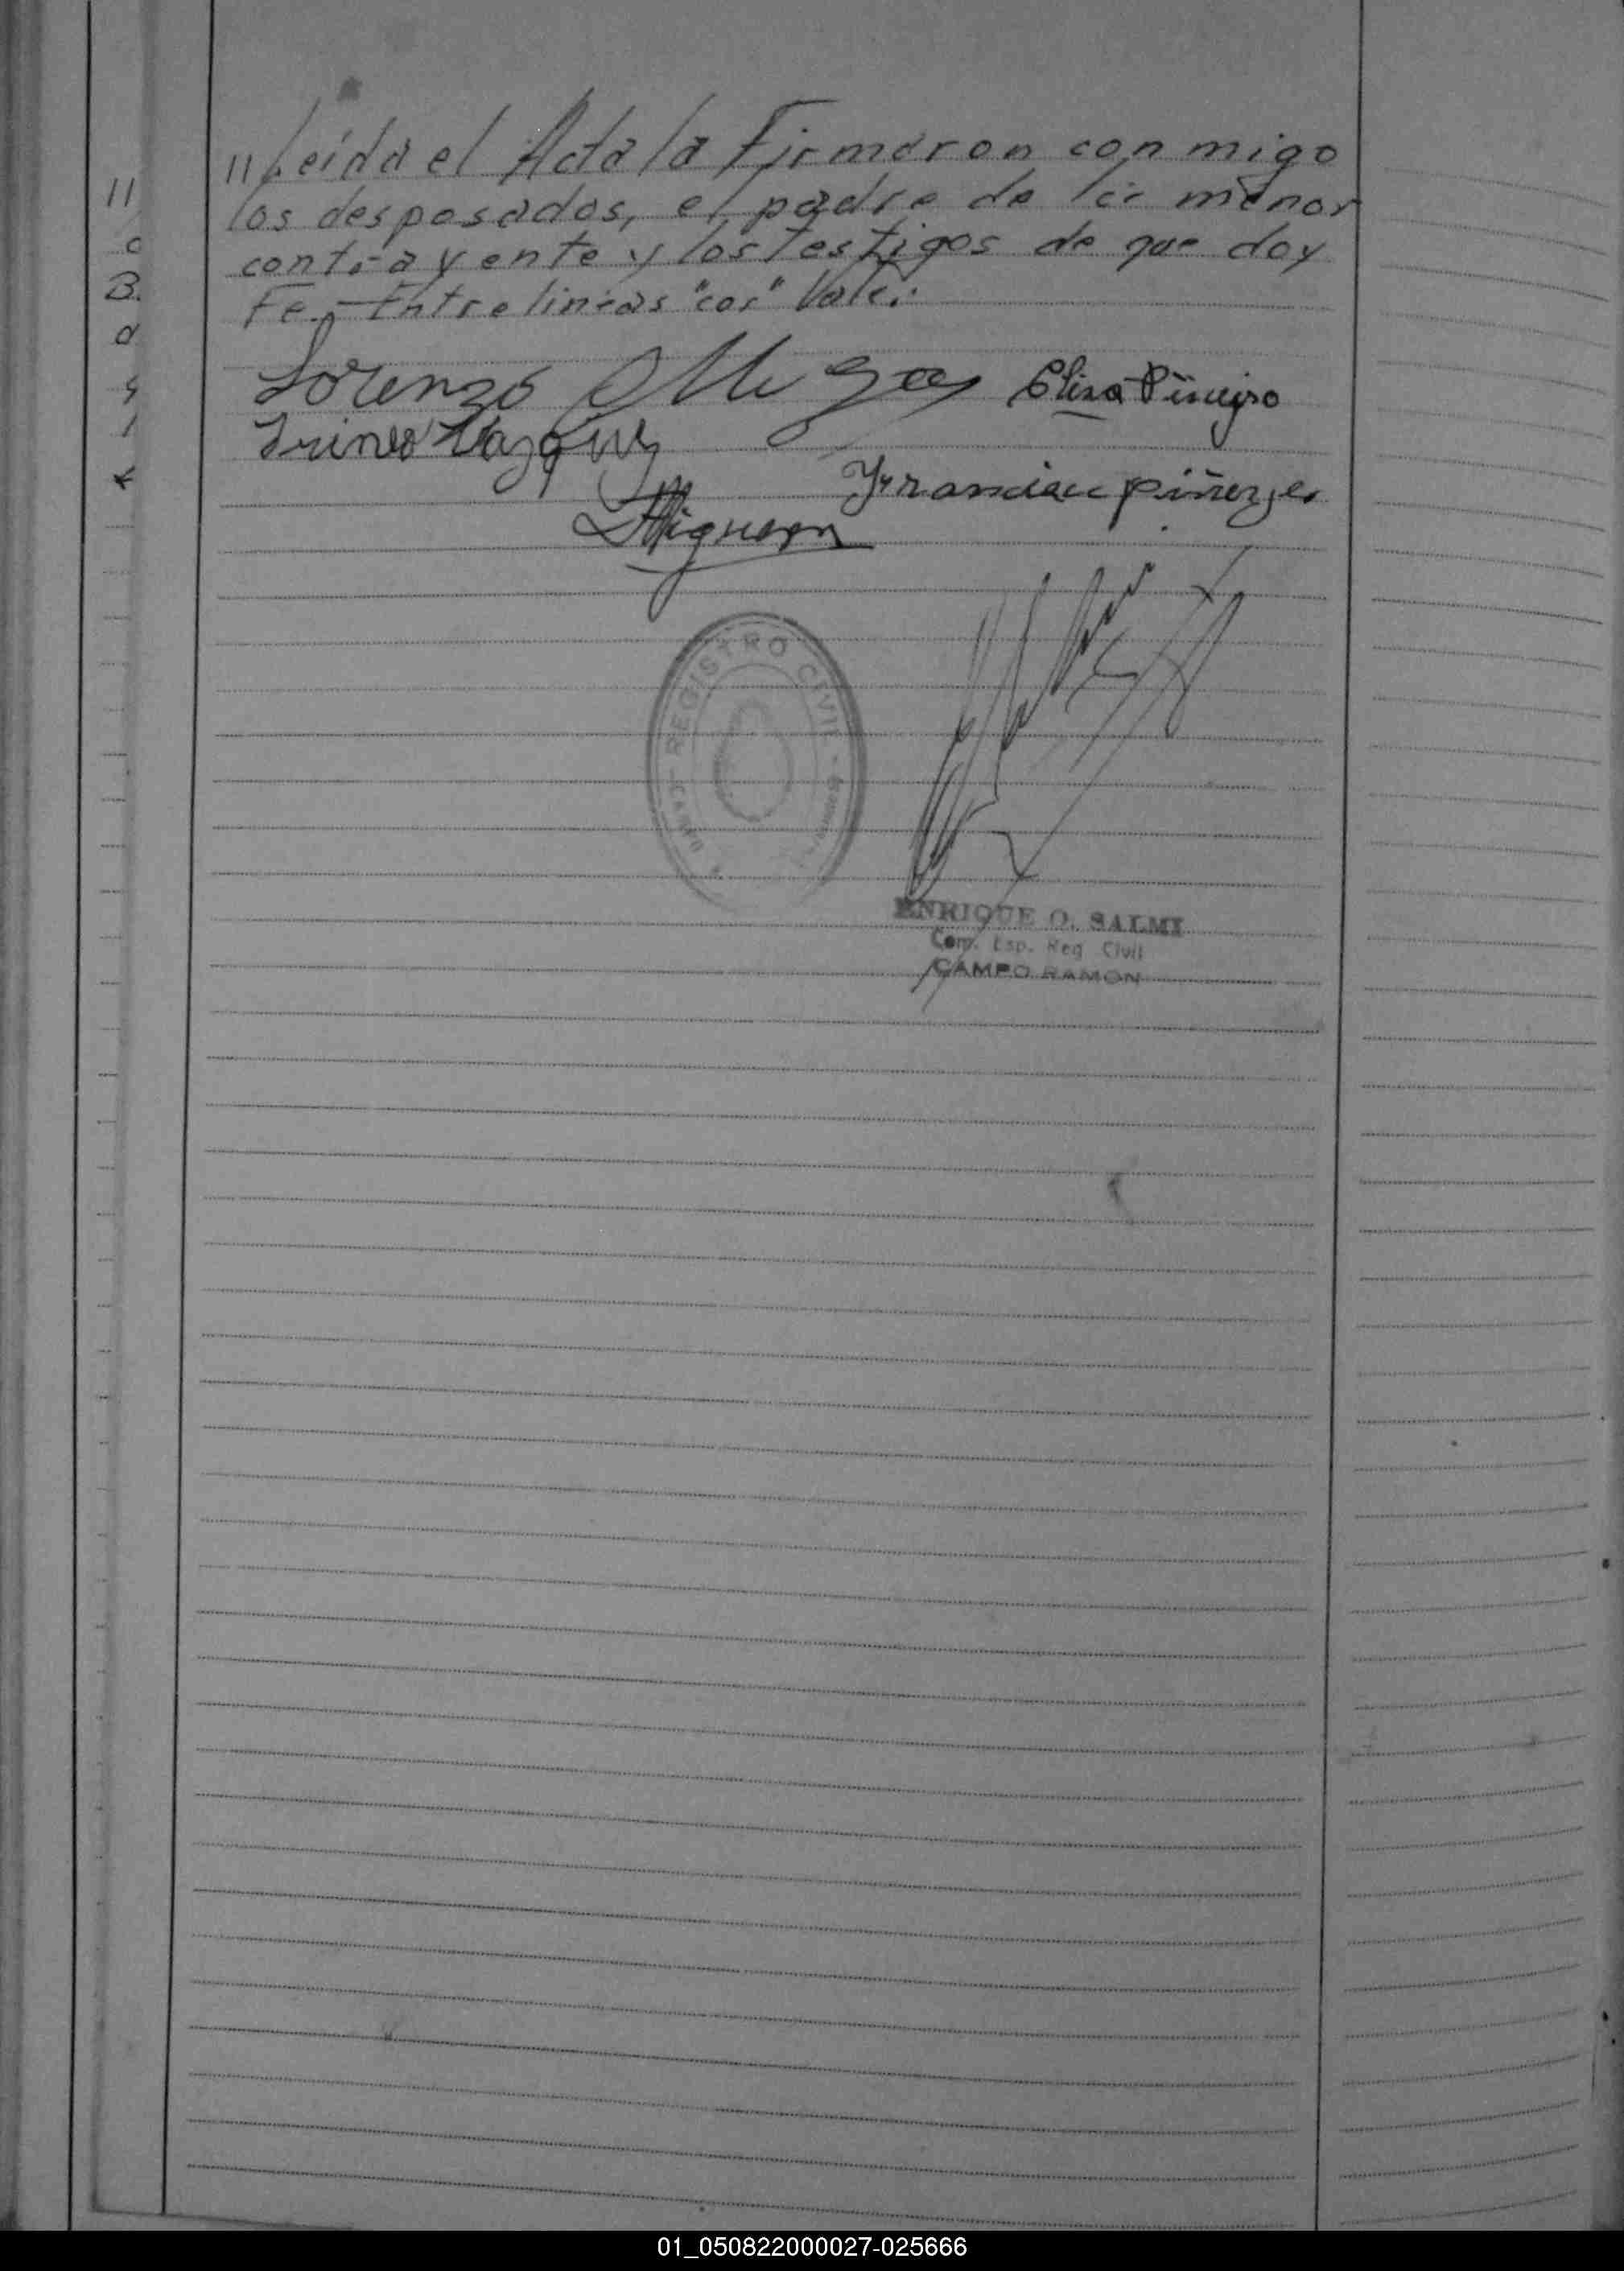 //Leída el Acta la Firmaron con migo
los desposados, el padre de la menor
contrayente y los testigos de que doy
Fe.- Entrelineas "cos" Vale.-
Lorenzo
Elisa Piñeyro
Vazquez
REGISTRO CIVIL
ENRIQUE O. SALMI
Com. Esp. Reg Civil
CAMPO RAMON
01_050822000027-025666